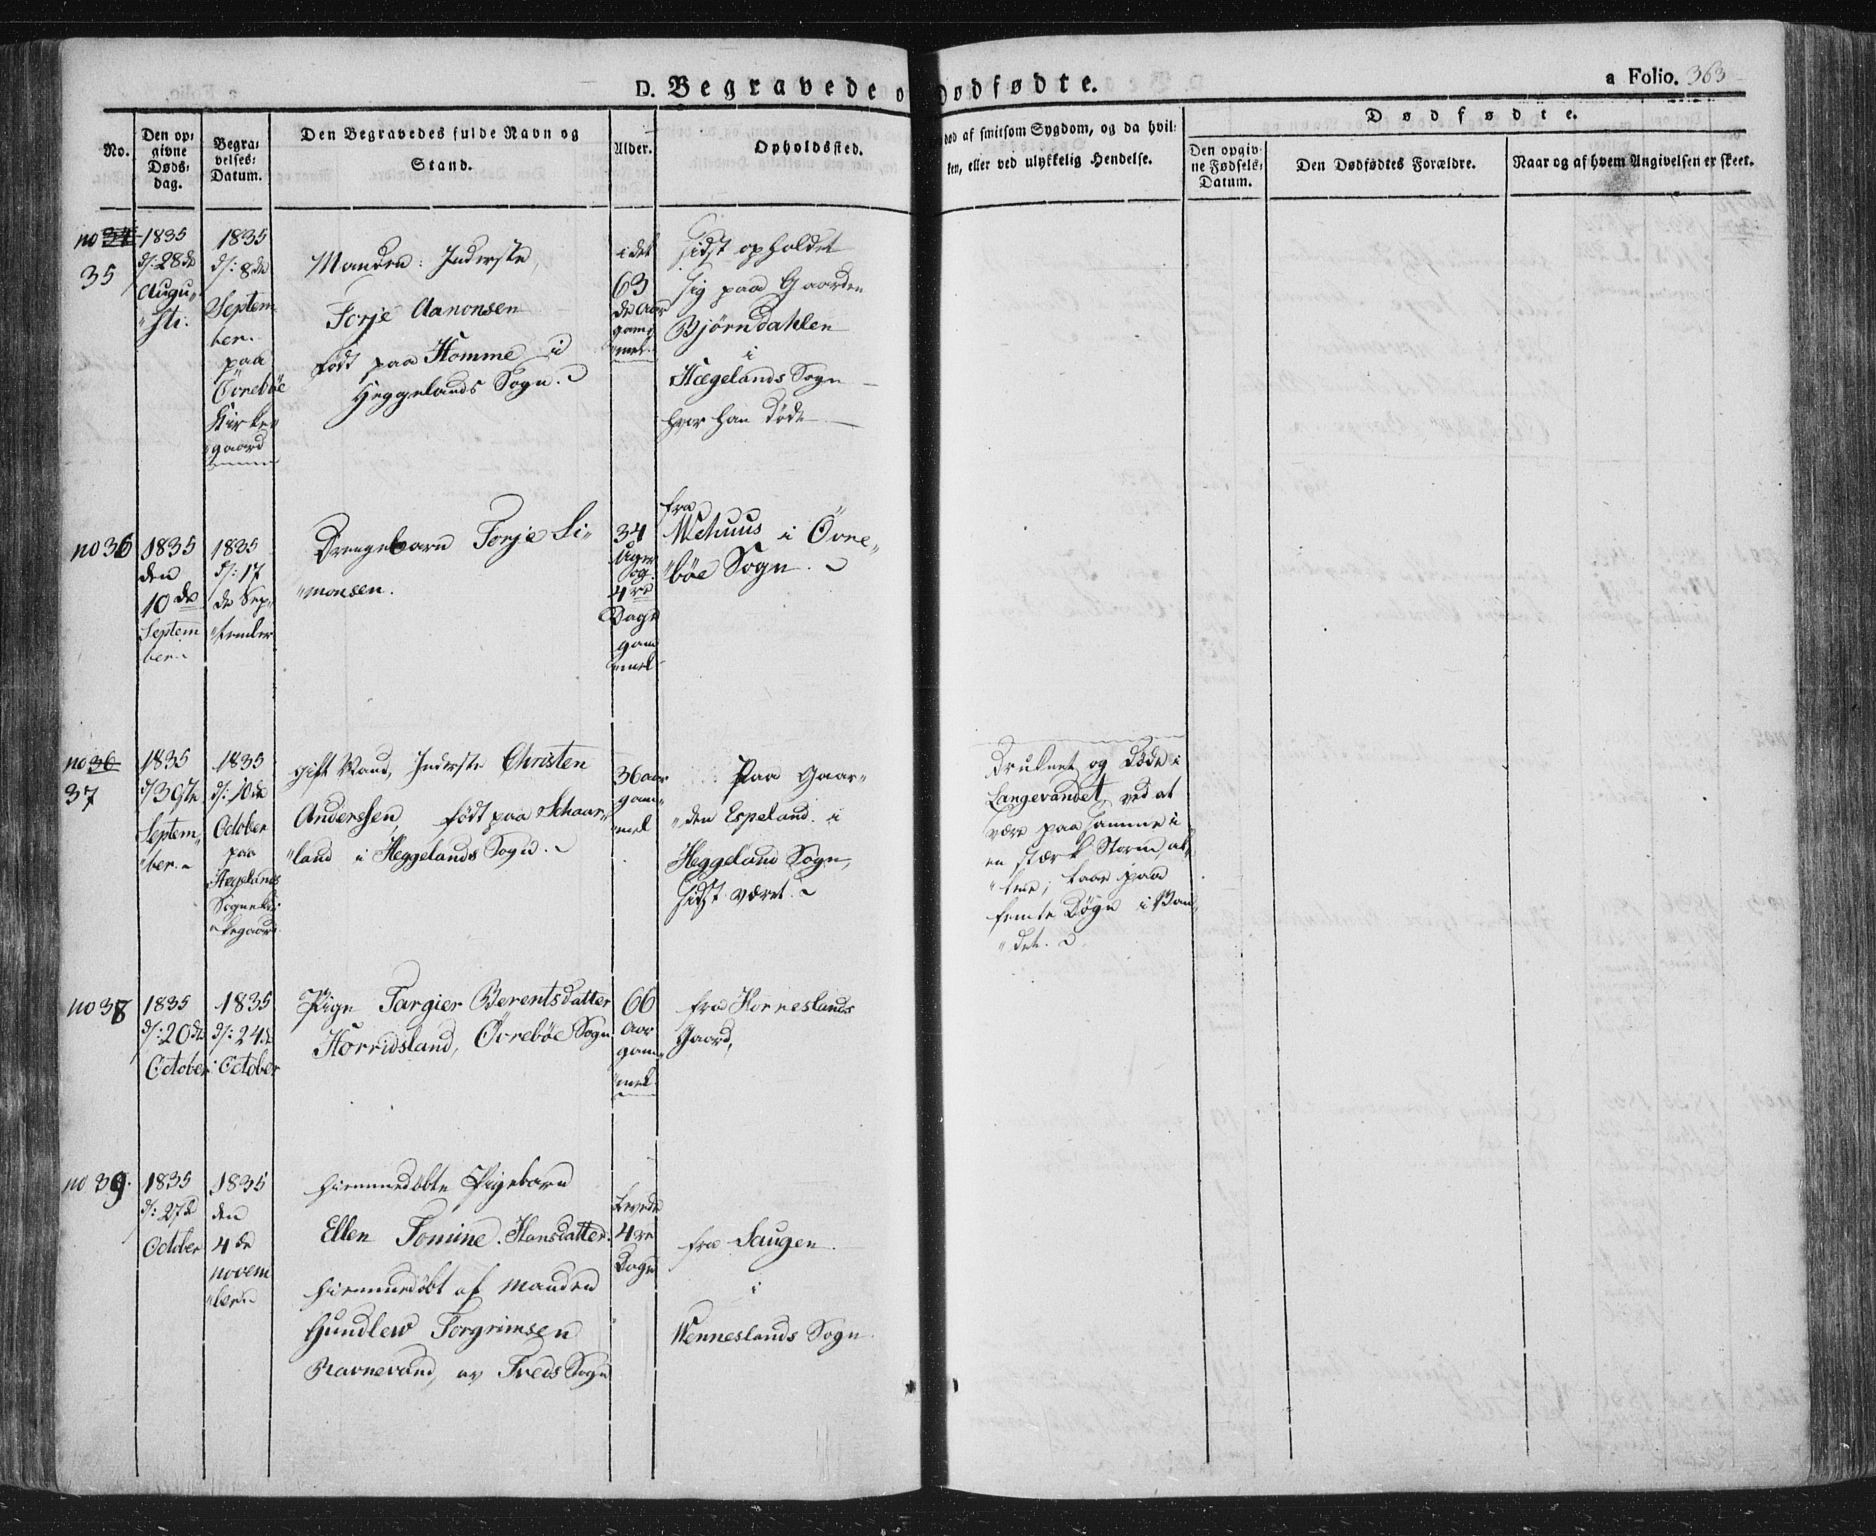 D. Begravede o
dödfødte.
a Folio. 363
No.
Den op-
givne
Døds-
dag.
Begra-
velses-
Datum.
Den Begravedes fulde Navn og
Stand.
Alder.
Opholdssted.
død af smitsom Sygdom, og da hvil-
ken, eller ved ulykkelig Hendelse.
Dødfødte.
Den opgiv-
ne Fødsels-
Datum.
Den Dødfødtes Forældre.
Naar og af hvem Angivelsen er skeet.
no 34
35
1835
d/: 28de
Augu-
"sti.
1835
d/: 8de
Septem-
ber.
paa
Övrebøe
Kirke-
"gaard
Manden: Inderste,
Torje Aanonsen
født paa Homme i
Heggelands Sogn.
i det
63
de Aar
gam-
"mel.
sidst opholdet
sig paa Gaarden
Bjørndahlen
i
Hægelands Sogn
hvor han døde
no 36
1835
den
10de
Septem
ber.
1835
d/: 17
de Sep-
"tember
Drengebarn Torje Si-
"monsen.
34
Uger
og
4re
Dage
gam
"mel
fra
Wehuus i Övre-
"bøe Sogn.
no 36
37
1835
d/30te
Septem-
"ber.
1835
d/: 10de
October
paa
Hægelands
Sogneki-
"kegaard
gift Mand, Inderste Christen
Anderssen født paa Schaar-
"land i Heggelands Sogn.
36 aar
gam-
"mel
Paa Gaar-
"den Espeland i
Heggeland Sogn,
sidst været.
Druknet og døde i
Langevandet, ved at
være paa samme i
en stærk Storm,
laae paa
femte Døgn i Van-
"det.
no 38
1835
d/: 20de
October
1835
d/: 24de
October
Pige Targier Berentsdatter
Horridsland, Övrebøe Sogn
66
aar
gam-
"mel
fra Horneslands
Gaard,
no 39.
1835
d/: 27de
October
1835
den
4de
novem
"ber
hiemmedøbte Pigebarn
Ellen Tomine Hansdatter.
hiemmedøbt af manden
Gundlew Torgrimsen
Ravnevand, av Treds Sogn
Levede
4re
Dage
fra Saugen.
i
Wenneslands Sogn.